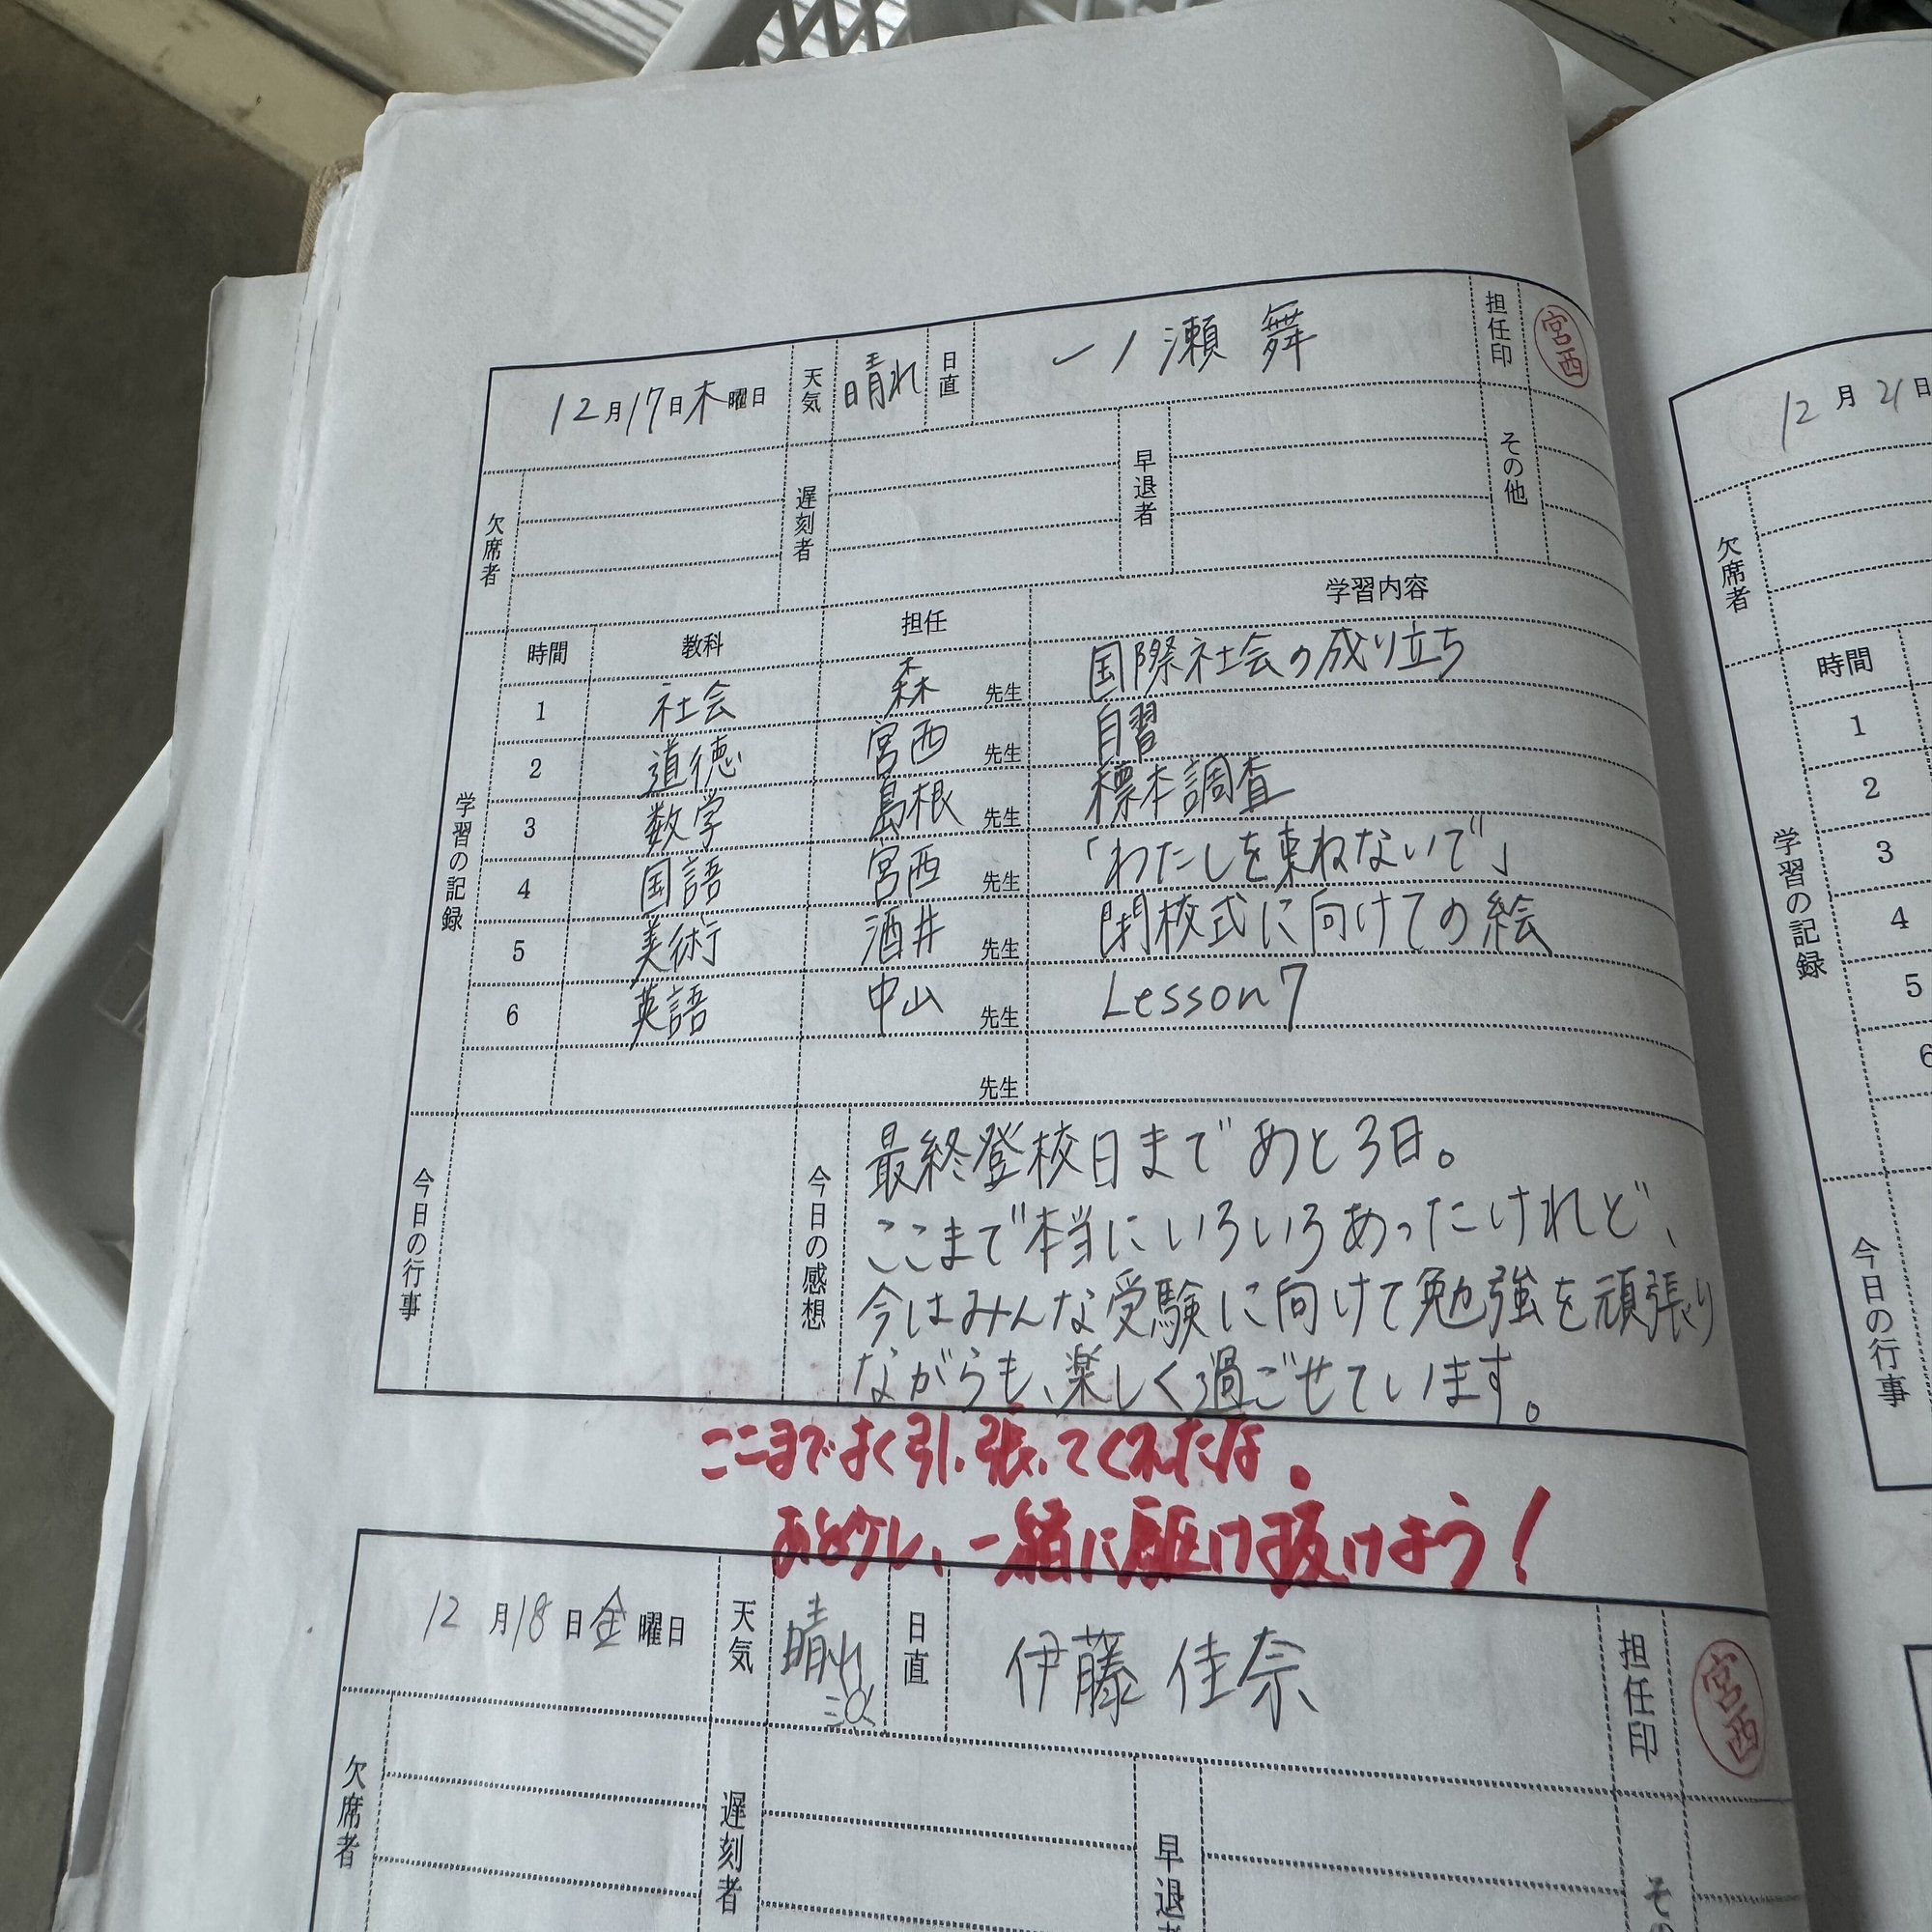 12月17日木曜日 天気 晴れ 日直 一ノ瀬 舞 担任印 宮西
欠席者 遅刻者 早退者 その他
学習の記録
時間 教科 担任 学習内容
1 社会 森 先生 国際社会の成り立ち
2 道徳 宮西 先生 自習
3 数学 島根 先生 標本調査
4 国語 宮西 先生 「わたしを束ねないで」
5 美術 酒井 先生 閉校式に向けての絵
6 英語 中山 先生 Lesson7
先生
今日の行事
今日の感想
最終登校日まであと3日。
ここまで本当にいろいろあったけれど、
今はみんな受験に向けて勉強を頑張り
ながらも、楽しく過ごせています。
ここまでよく引っ張ってくれたな。
あと少し、一緒に駆け抜けよう!
12月18日金曜日 天気 晴れ 日直 伊藤 佳奈 担任印 宮西
欠席者 遅刻者 早退
12月21日
欠席者
学習の記録
時間
1
2
3
4
5
6
今日の行事